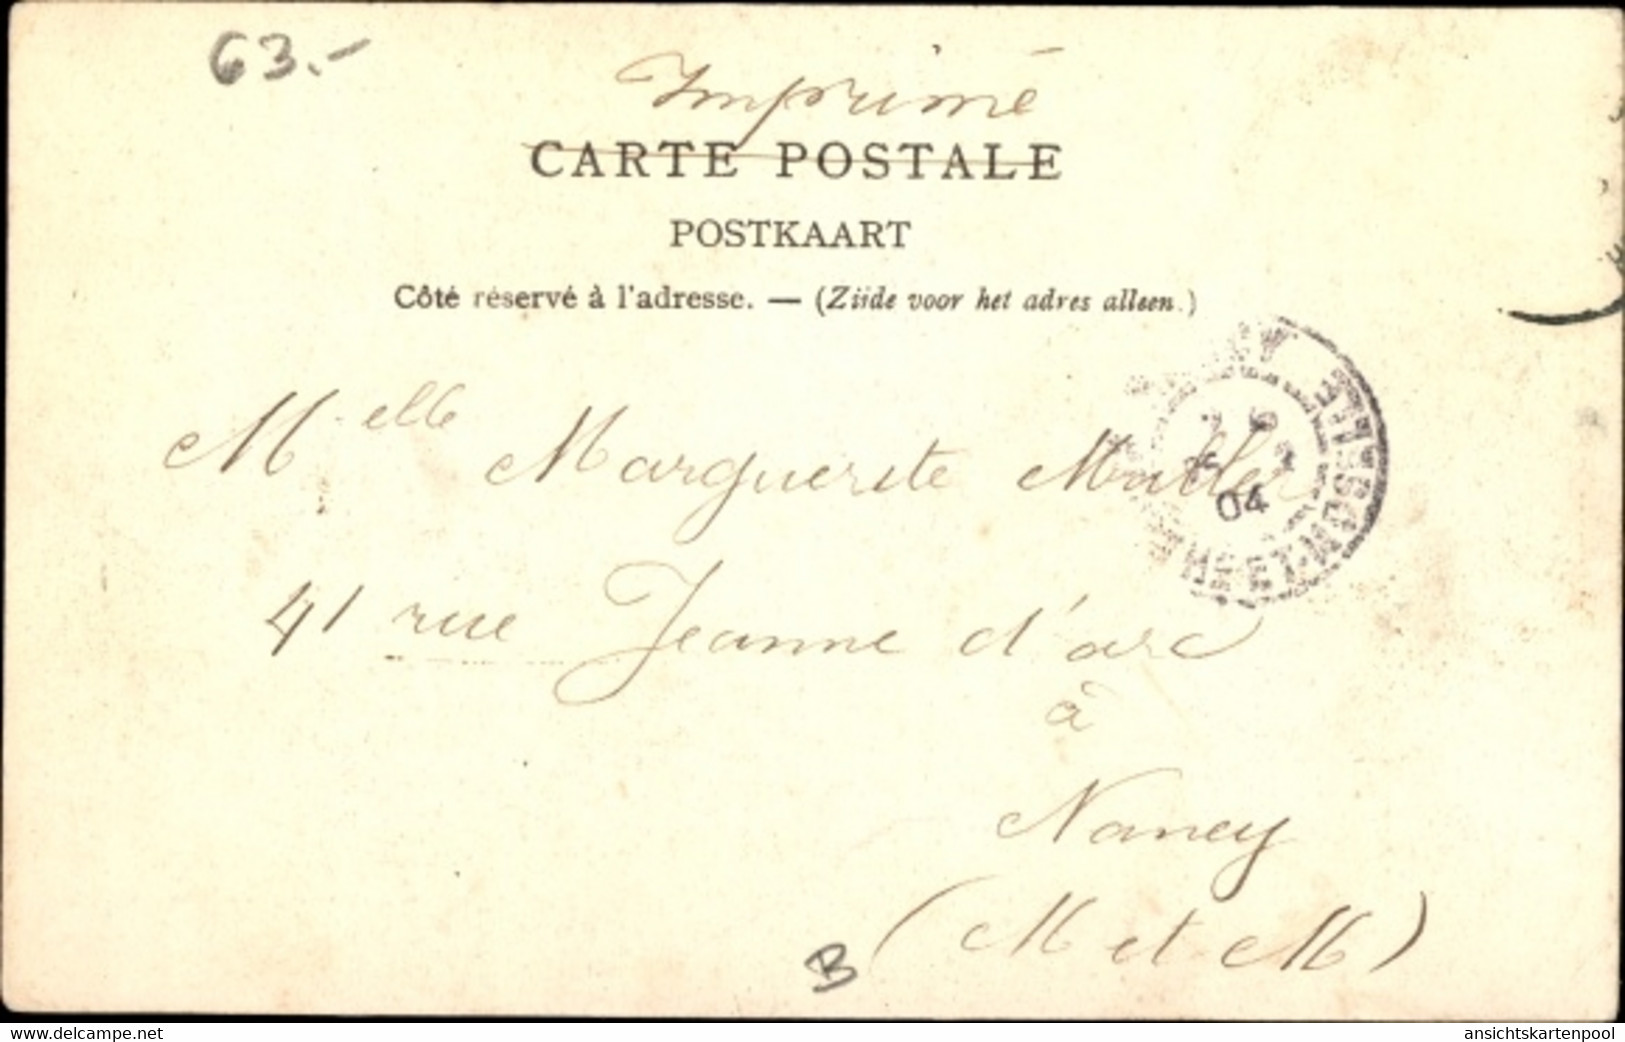 63.-
Imprimé
CARTE POSTALE
POSTKAART
Côté réservé à l'adresse. — (Zijde voor het adres alleen.)
Melle Marguerite Muller
04
ET-MOSELLE
41 rue Jeanne d'arc
à
Nancy
(M et M)
B
www.delcampe.net
ansichtskartenpool